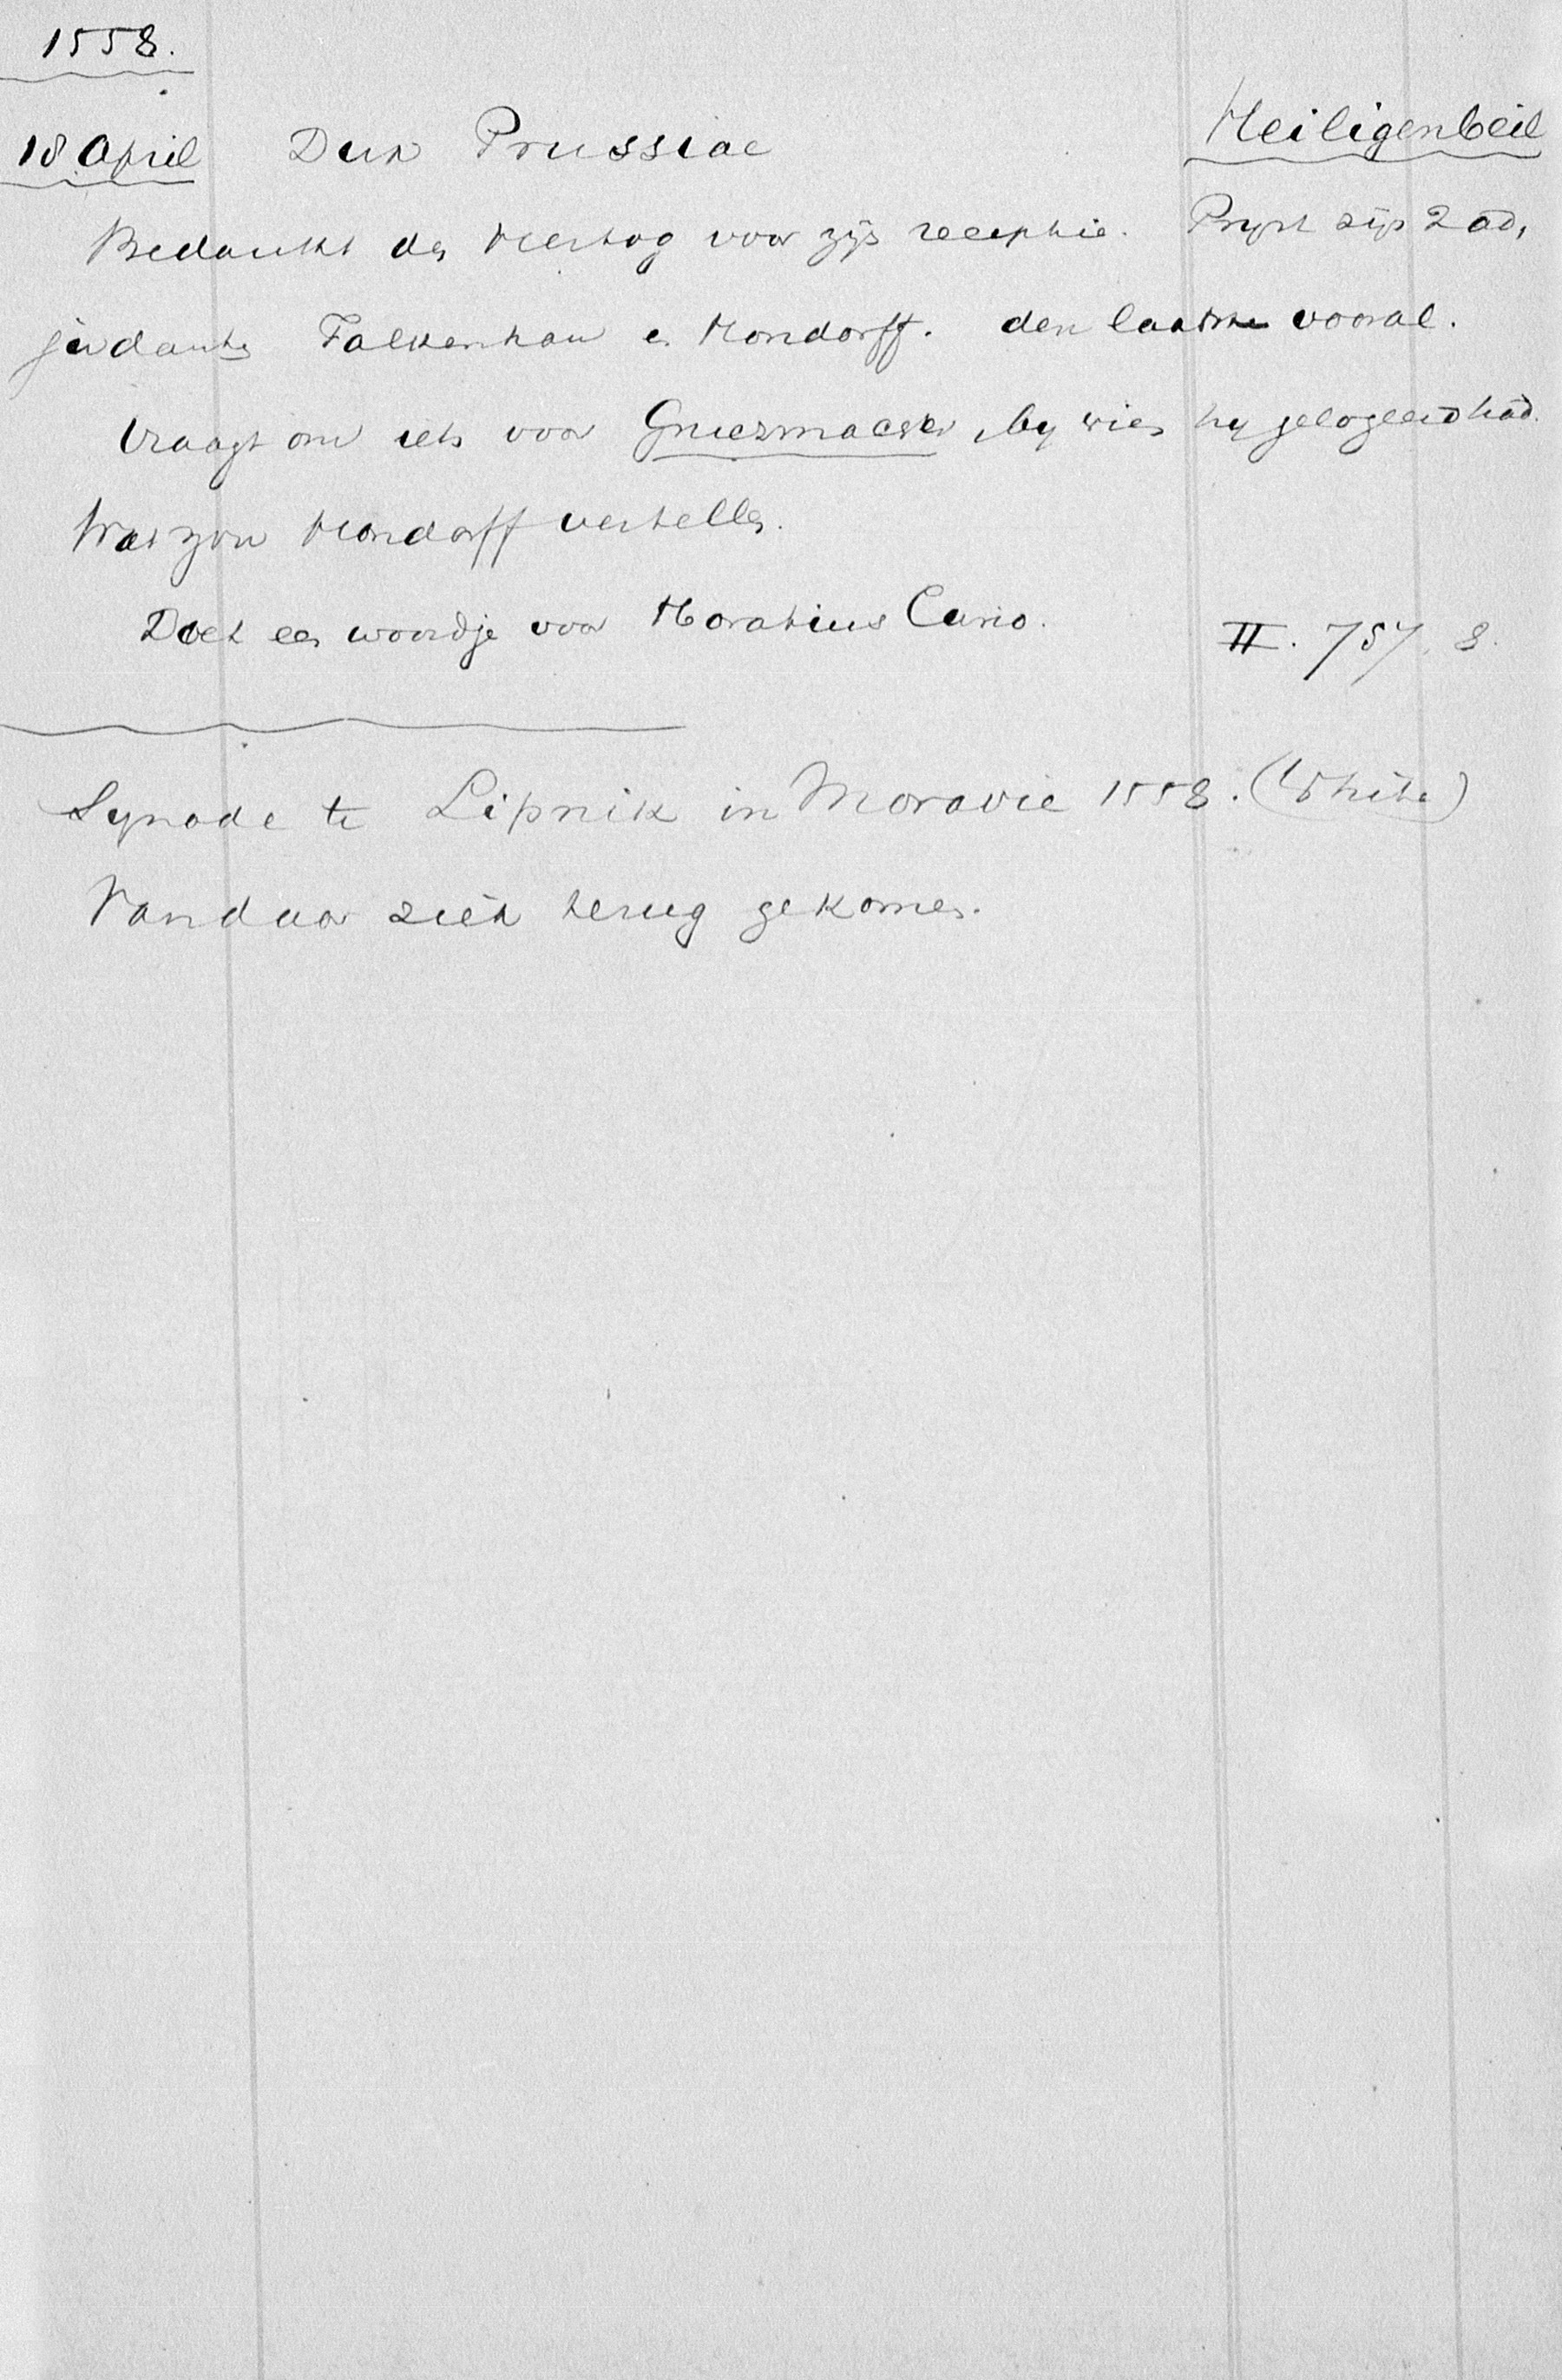 1558.
18 April Dux Prussiae Heiligenbeil
Bedankt den Hertog voor zijn receptie. Prijst zijn 2 ad,
judanten Falkenhan en Hondorff. den laatste vooral.
Vraagt om iets voor Gniezmacker, by wien hy gelogeerd had.
Wat zou Hondorff vertellen.
Doet een woordje voor Horatius Curio. II. 757. 8.
Synode te Lipnik in Moravie 1558. (White)
Vandaar ziek terug gekomen.